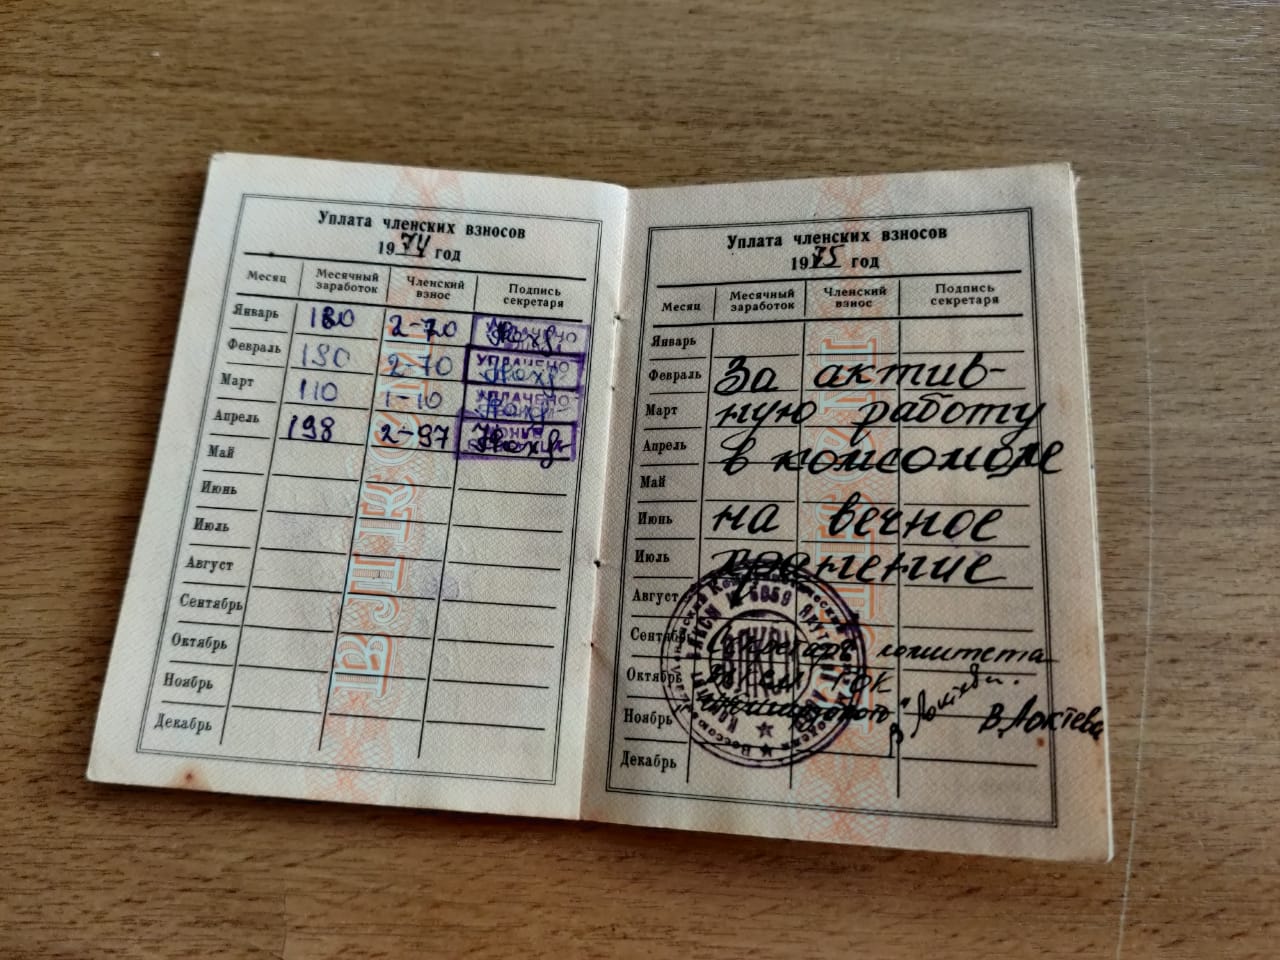 Уплата членских взносов
1974 год
Месяц Месячный заработок Членский взнос Подпись секретаря
Январь 180 2-70 УПЛАЧЕНО
Февраль 180 2-70 УПЛАЧЕНО
Март 110 1-10 УПЛАЧЕНО
Апрель 198 2-97
Май
Июнь
Июль
Август
Сентябрь
Октябрь
Ноябрь
Декабрь
ВЛКСМ
Уплата членских взносов
1975 год
Месяц Месячный заработок Членский взнос Подпись секретаря
Январь
Февраль За актив-
Март ную работу
Апрель в комсомоле
Май
Июнь на вечное
Июль хранение
Август
Сентябрь Секретарь комитета
Октябрь ВЛКСМ
Ноябрь В.Локтева
Декабрь